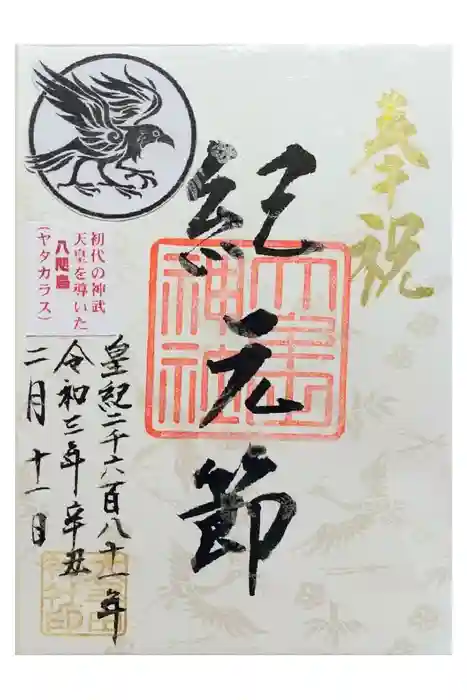 奉祝
紀元節
初代の神武
天皇を導いた
八咫烏
(ヤタカラス)
皇紀二千六百八十一年
令和三年辛丑
二月十一日